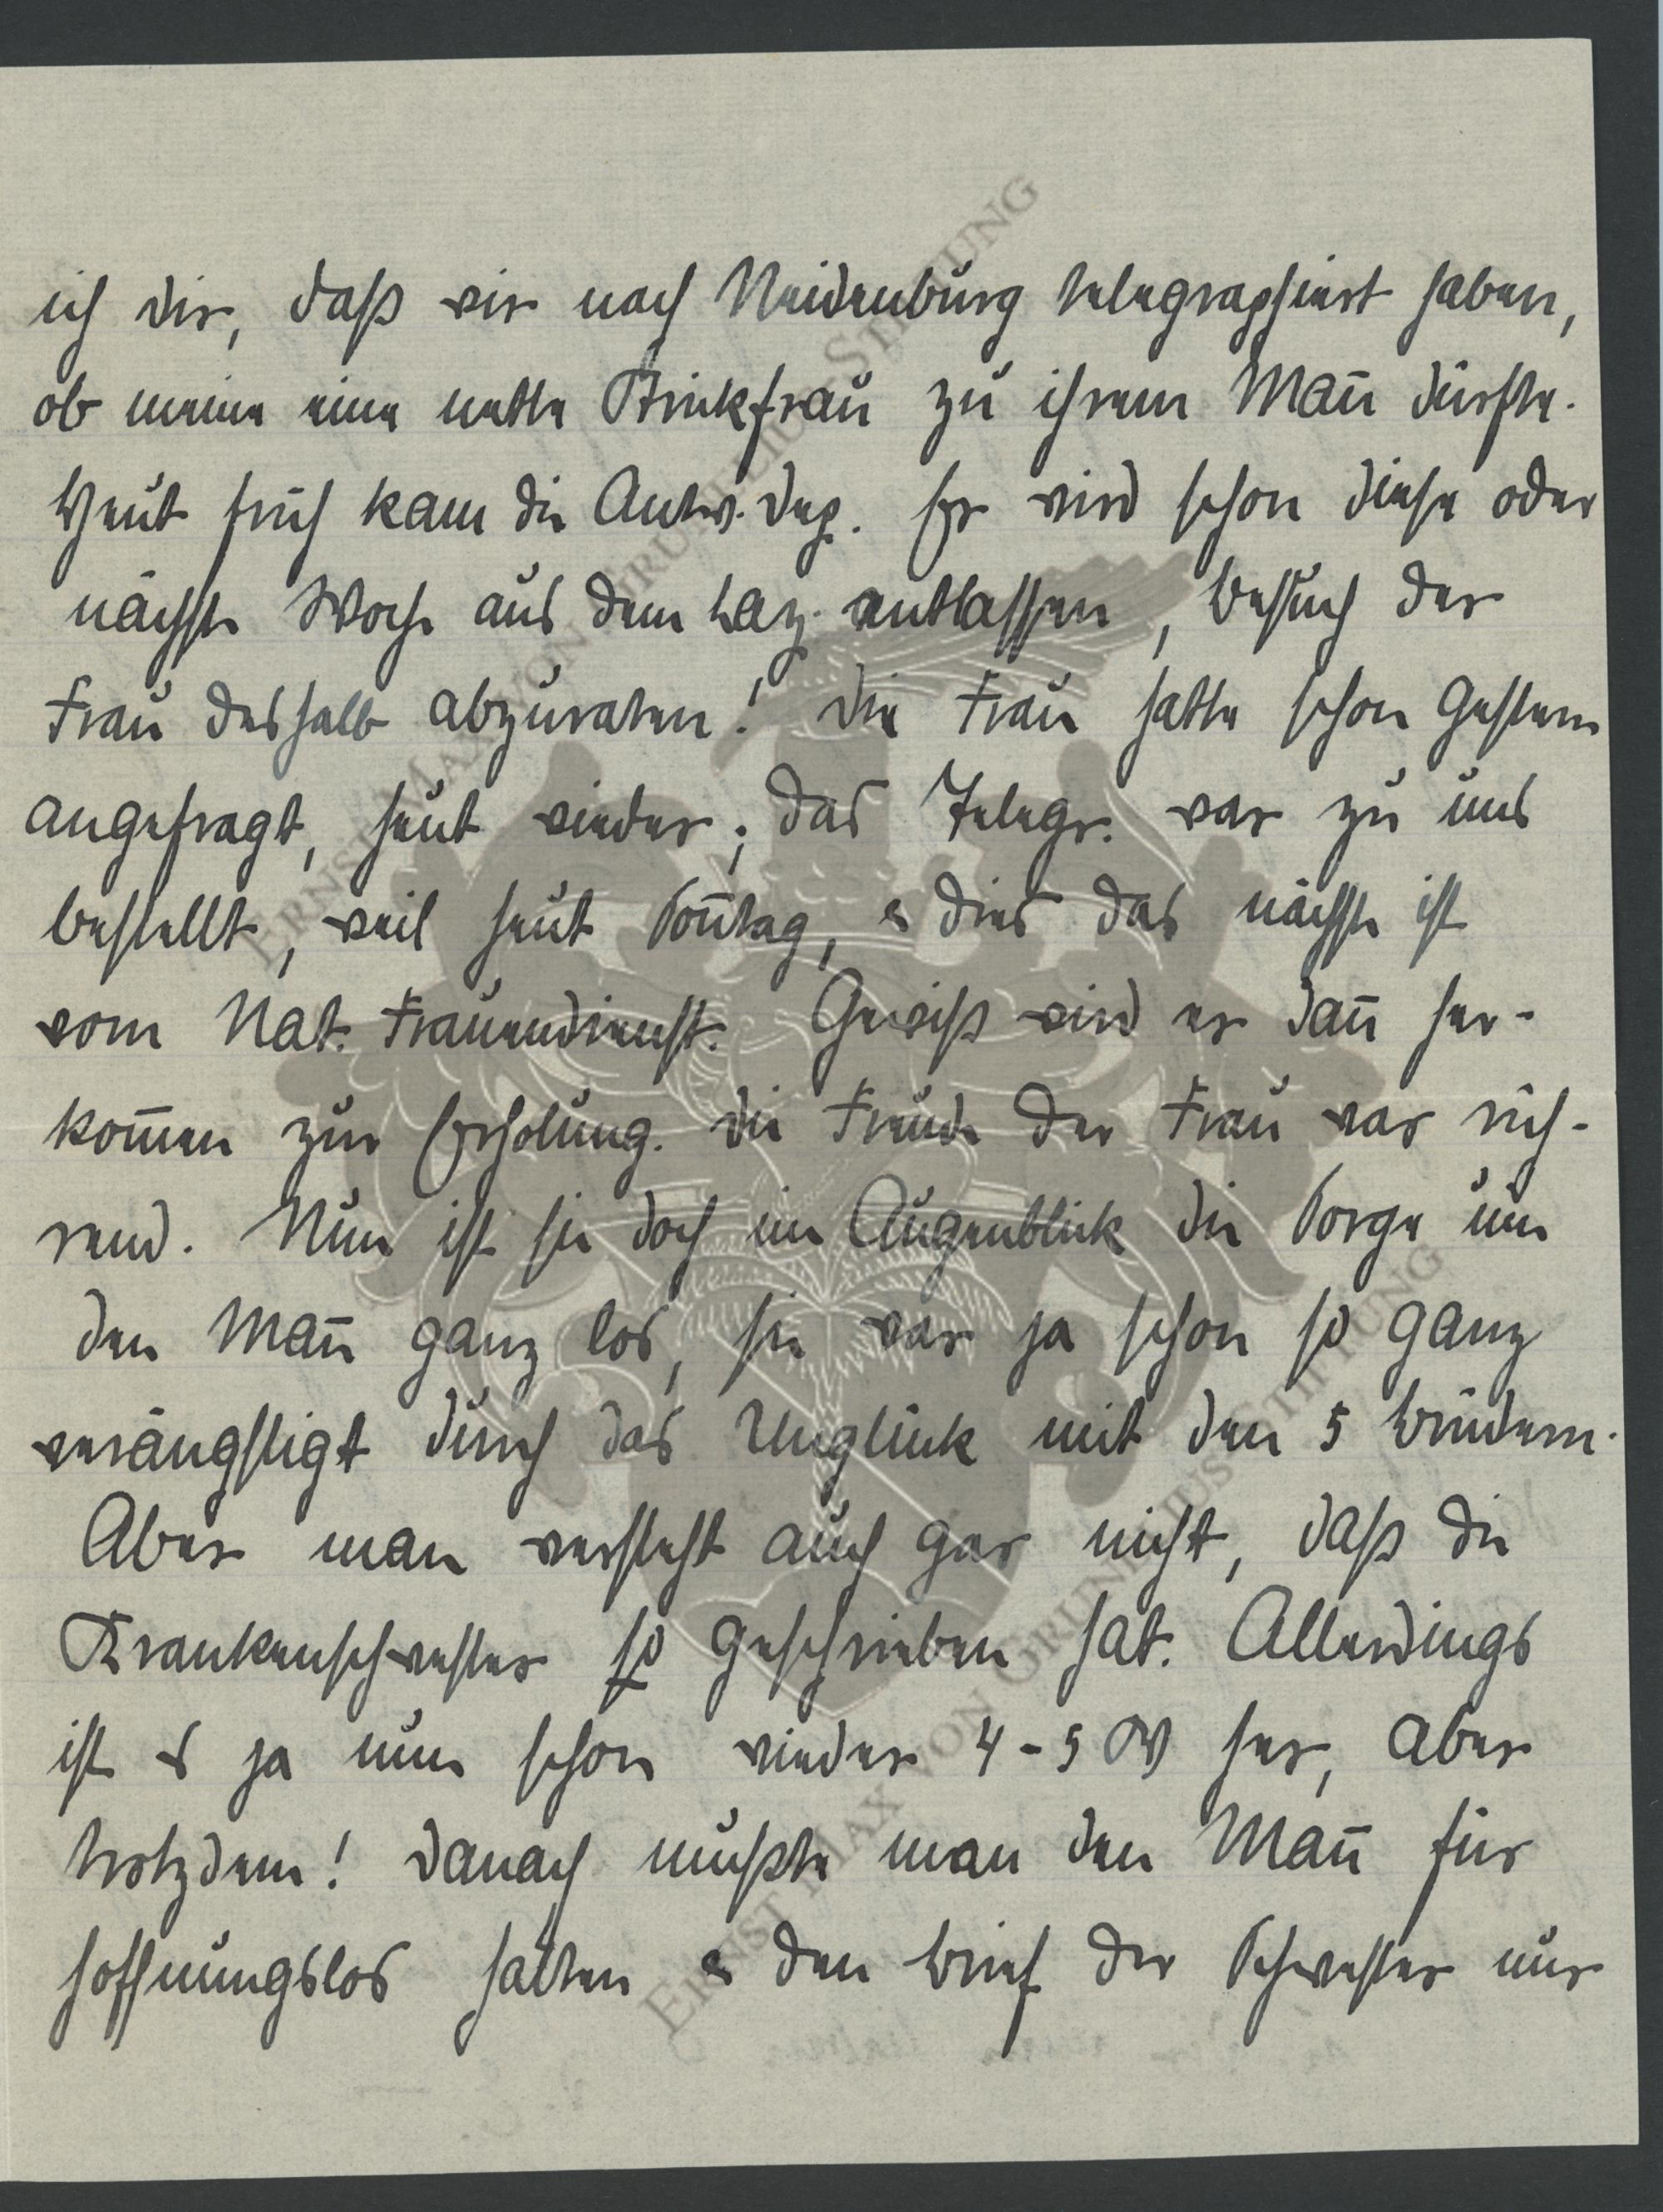 ich dir, daß wir nach Neidenburg telegraphiert haben,
ob meine eine nette Strickfrau zu ihrem Mañ dürfte.
Heut früh kam die Antw. Dep. Er wird schon diese oder
nächste Woche aus dem Laz. entlassen, Besuch der
Frau deshalb abzuraten! Die Frau hatte schon gestern
angefragt, heut wieder; das Telegr. war zu uns
bestellt, weil heut Soñtag, & dies das nächste ist
vom Nat. Frauendienst. Gewiß wird er dañ her-
kom̄en zur Erholung. Die Freude der Frau war rüh-
rend. Nun ist sie doch im Augenblick die Sorge um
den Mañ ganz los, sie war ja schon so ganz
verängstigt durch das Unglück mit den 5 Brüdern.
Aber man versteht auch gar nicht, daß die
Krankenschwester so geschrieben hat. Allerdings
ist es ja nun schon wieder 4-5 W her, aber
trotzdem! Danach mußte man den Mañ für
hoffnungslos halten & den Brief der Schwester nur
ERNST MAX VON GRUNELIUS STIFTUNG
ERNST MAX VON GRUNELIUS STIFTUNG